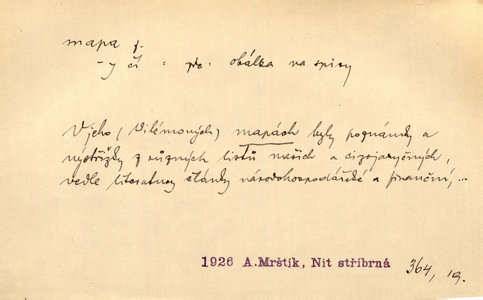 mapa f.
-y čí : př: obálka na spisy
V jeho (Vilémových) mapách byly poznámky a
výstřižky z různých listů našich a cizojazyčných,
vedle literatury články národohospodářské a finanční, ...
1926 A.Mrštík, Nit stříbrná 364, 19.